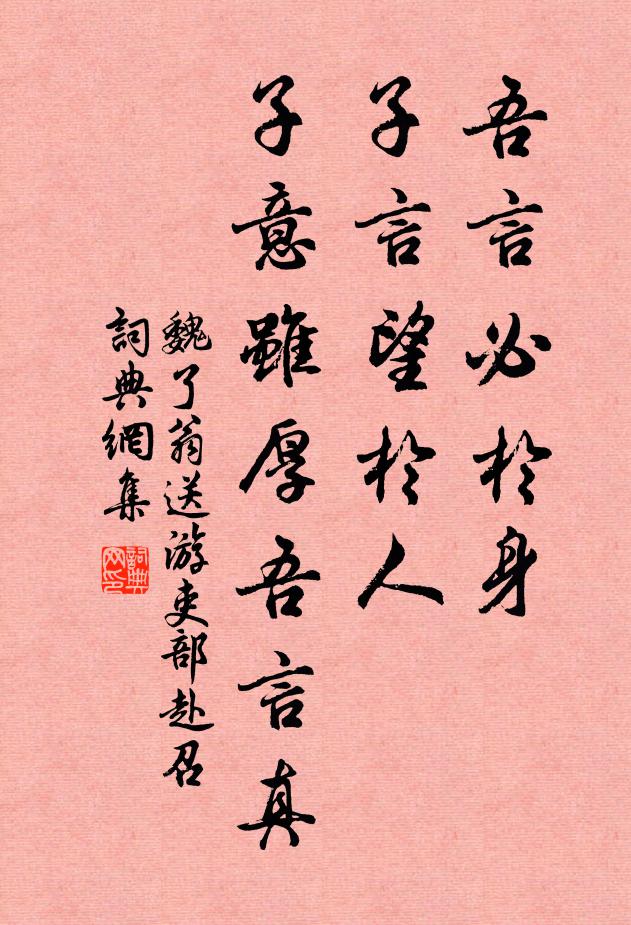 吾言必於身
子言望於人
子意雖厚吾言真
魏了翁送游吏部赴召
詞典網集
詞典网印